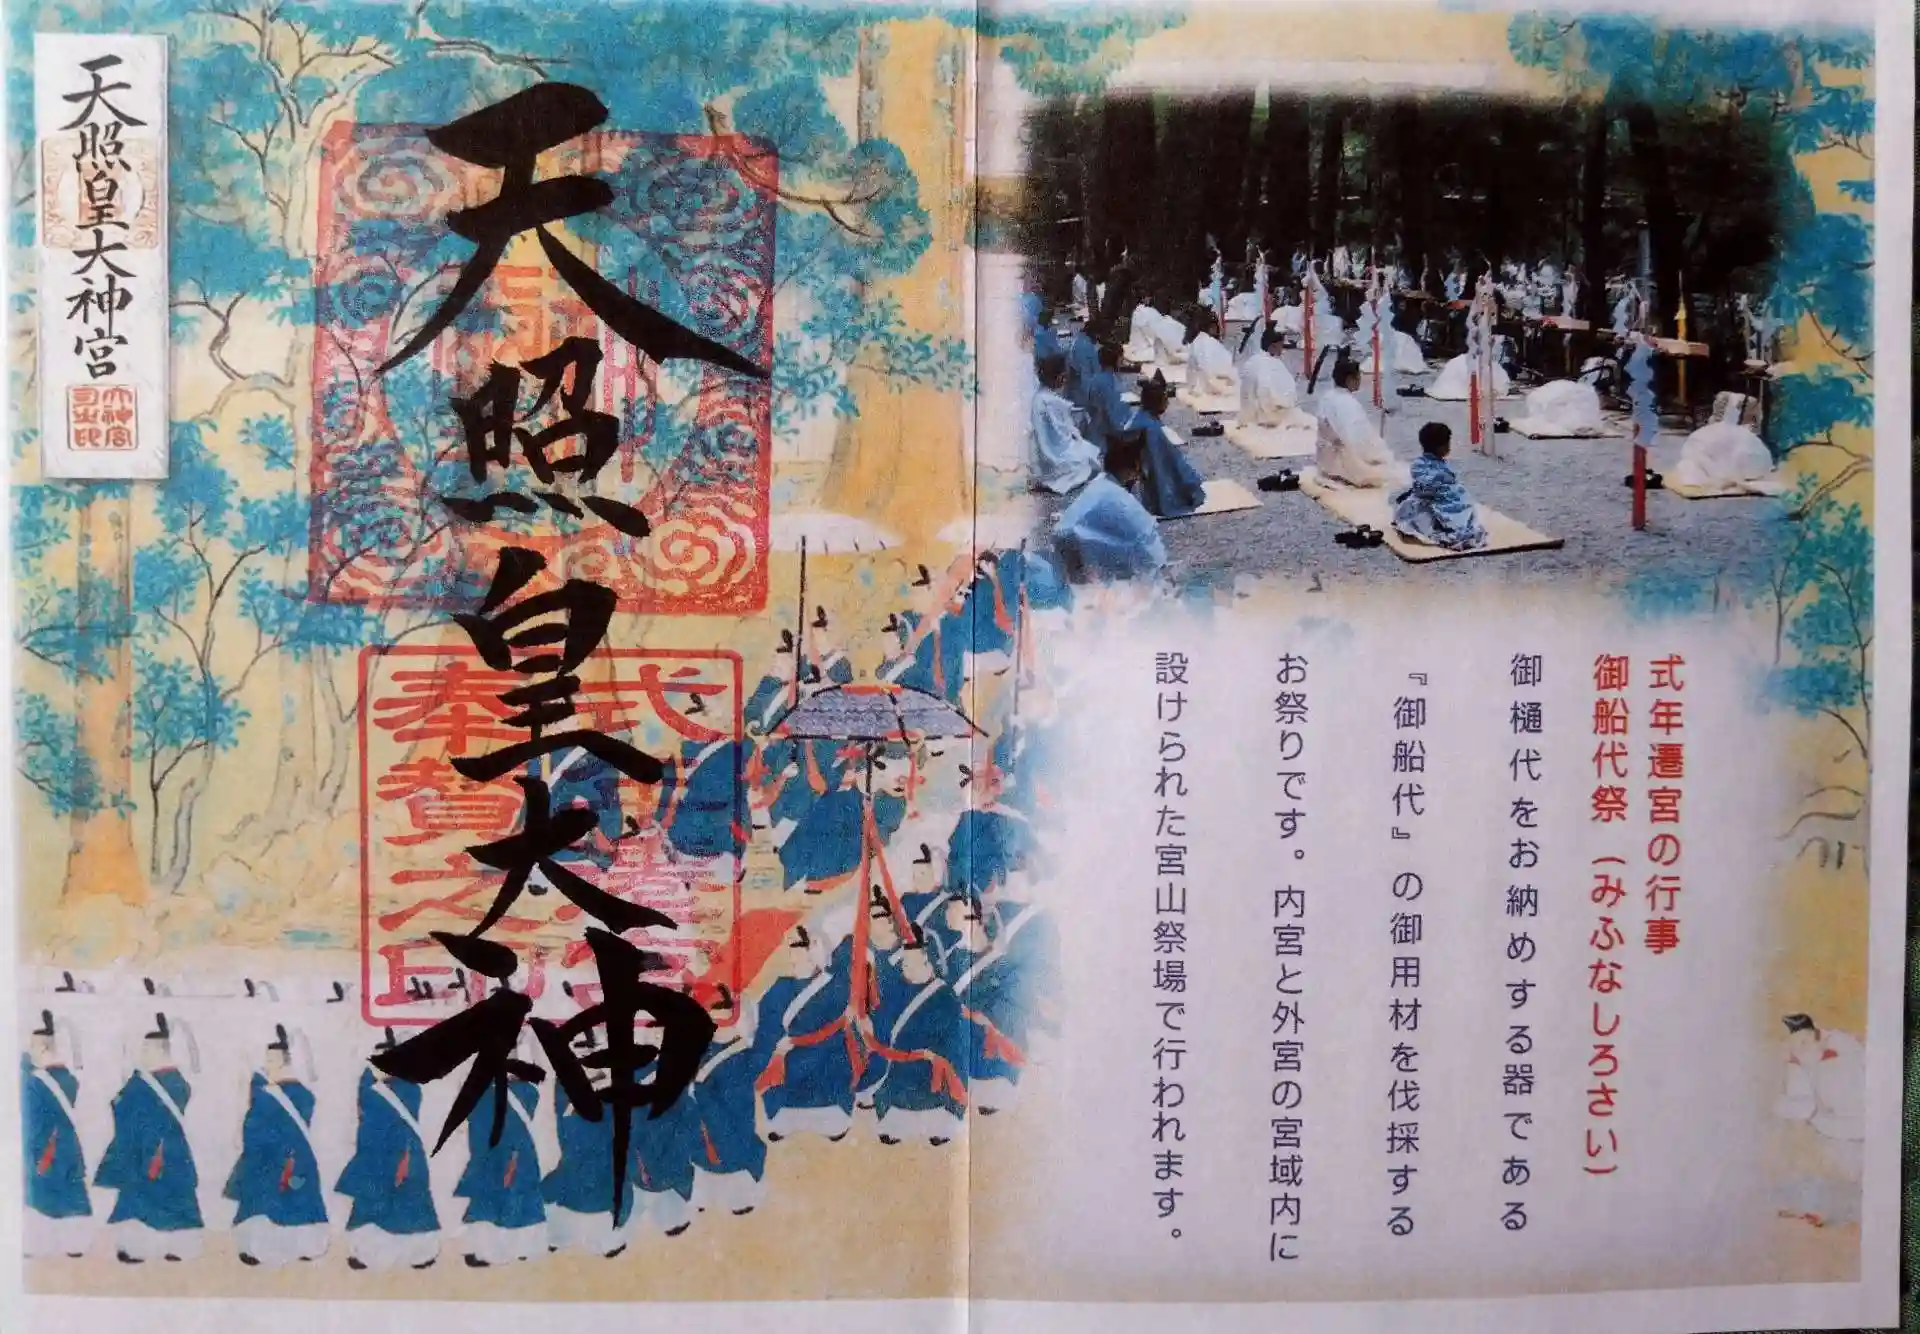 式年遷宮の行事
御船代祭（みふなしろさい）
御樋代をお納めする器である
『御船代』の御用材を伐採する
お祭りです。内宮と外宮の宮域内に
設けられた宮山祭場で行われます。
天照皇大神
式年遷宮
奉賛之印
天照皇大神宮
大神宮
司之印